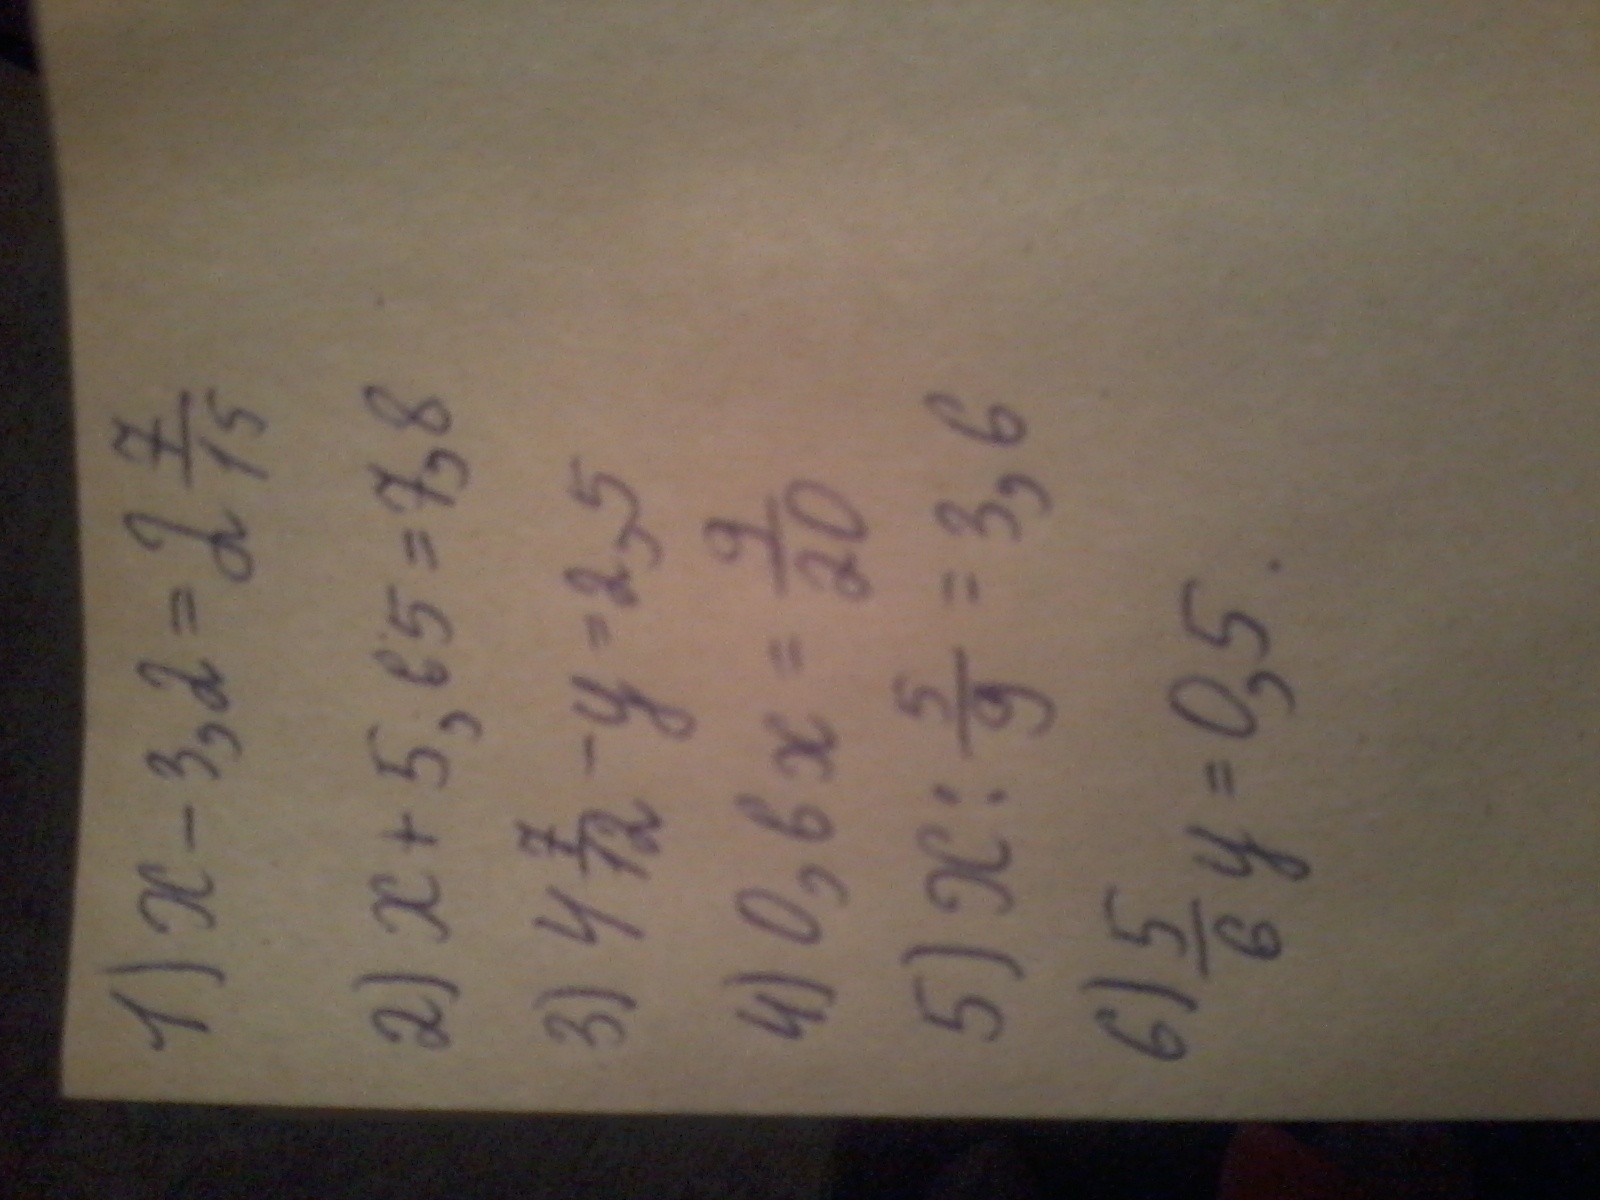 1) x - 3,2 = 2 7/15
2) x + 5,65 = 7,8
3) 4 7/12 - y = 2,5
4) 0,6 x = 9/20
5) x : 5/9 = 3,6
6) 5/6 y = 0,5.